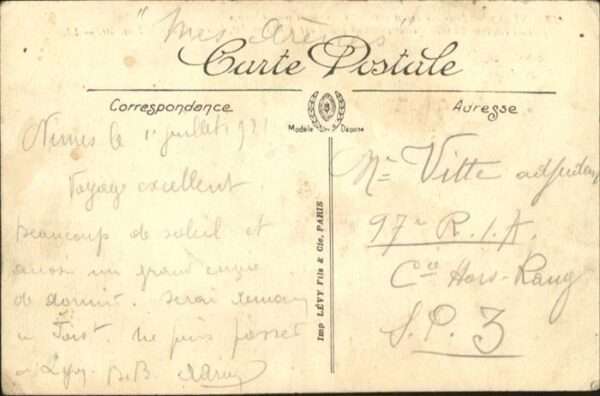 "Mes Arènes"
Carte Postale
Correspondance
Adresse
Modèle Déposé
Nimes le 1er juillet 921
Voyage excellent
beaucoup de soleil et
aussi un grand
de dormir. Serai demain
Ne puis passer
à Lyon. B.B.
Imp LÉVY Fils & Cie, PARIS
Mr Vitte adjudant
97e R.I.A.
Cie Hors-Rang
S.P. 3